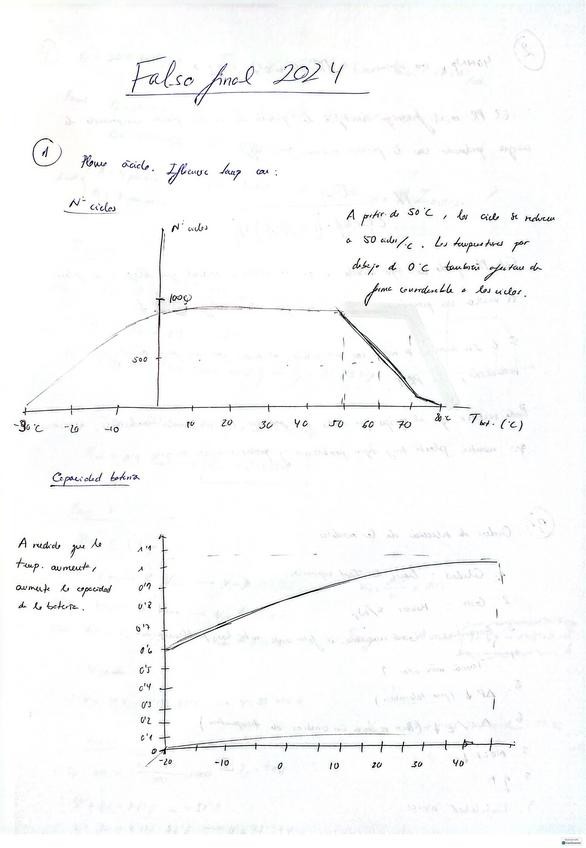 Falso final 2024
1
Plomo ácido. Influencia temp con:
Nº ciclos
Nº ciclos
A partir de 50ºC, los ciclos se reducen
a 50 ciclos/ºC. Las temperaturas por
debajo de 0ºC también afectan de
forma considerable a los ciclos.
1000
500
-30ºC -20 -10 10 20 30 40 50 60 70 80ºC T bat. (ºC)
Capacidad batería
A medida que la
temp. aumenta,
aumenta la capacidad
de la batería.
1'1
1
0'9
0'8
0'7
0'6
0'5
0'4
0'3
0'2
0'1
0
-20 -10 0 10 20 30 40